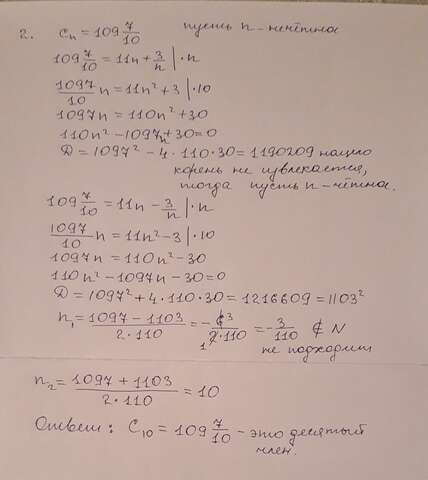 2. Cn = 109 7/10 пусть n - нечётное
109 7/10 = 11n + 3/n | · n
1097/10 n = 11n² + 3 | · 10
1097n = 110n² + 30
110n² - 1097n + 30 = 0
D = 1097² - 4 · 110 · 30 = 1190209 нацело
корень не извлекается,
тогда пусть n - чётное.
109 7/10 = 11n - 3/n | · n
1097/10 n = 11n² - 3 | · 10
1097n = 110n² - 30
110n² - 1097n - 30 = 0
D = 1097² + 4 · 110 · 30 = 1216609 = 1103²
n₁ = (1097 - 1103)/(2 · 110) = - 6 3/(1 2 · 110) = - 3/110 ∉ N
не подходит
n₂ = (1097 + 1103)/(2 · 110) = 10
Ответ: C₁₀ = 109 7/10 - это десятый
член.